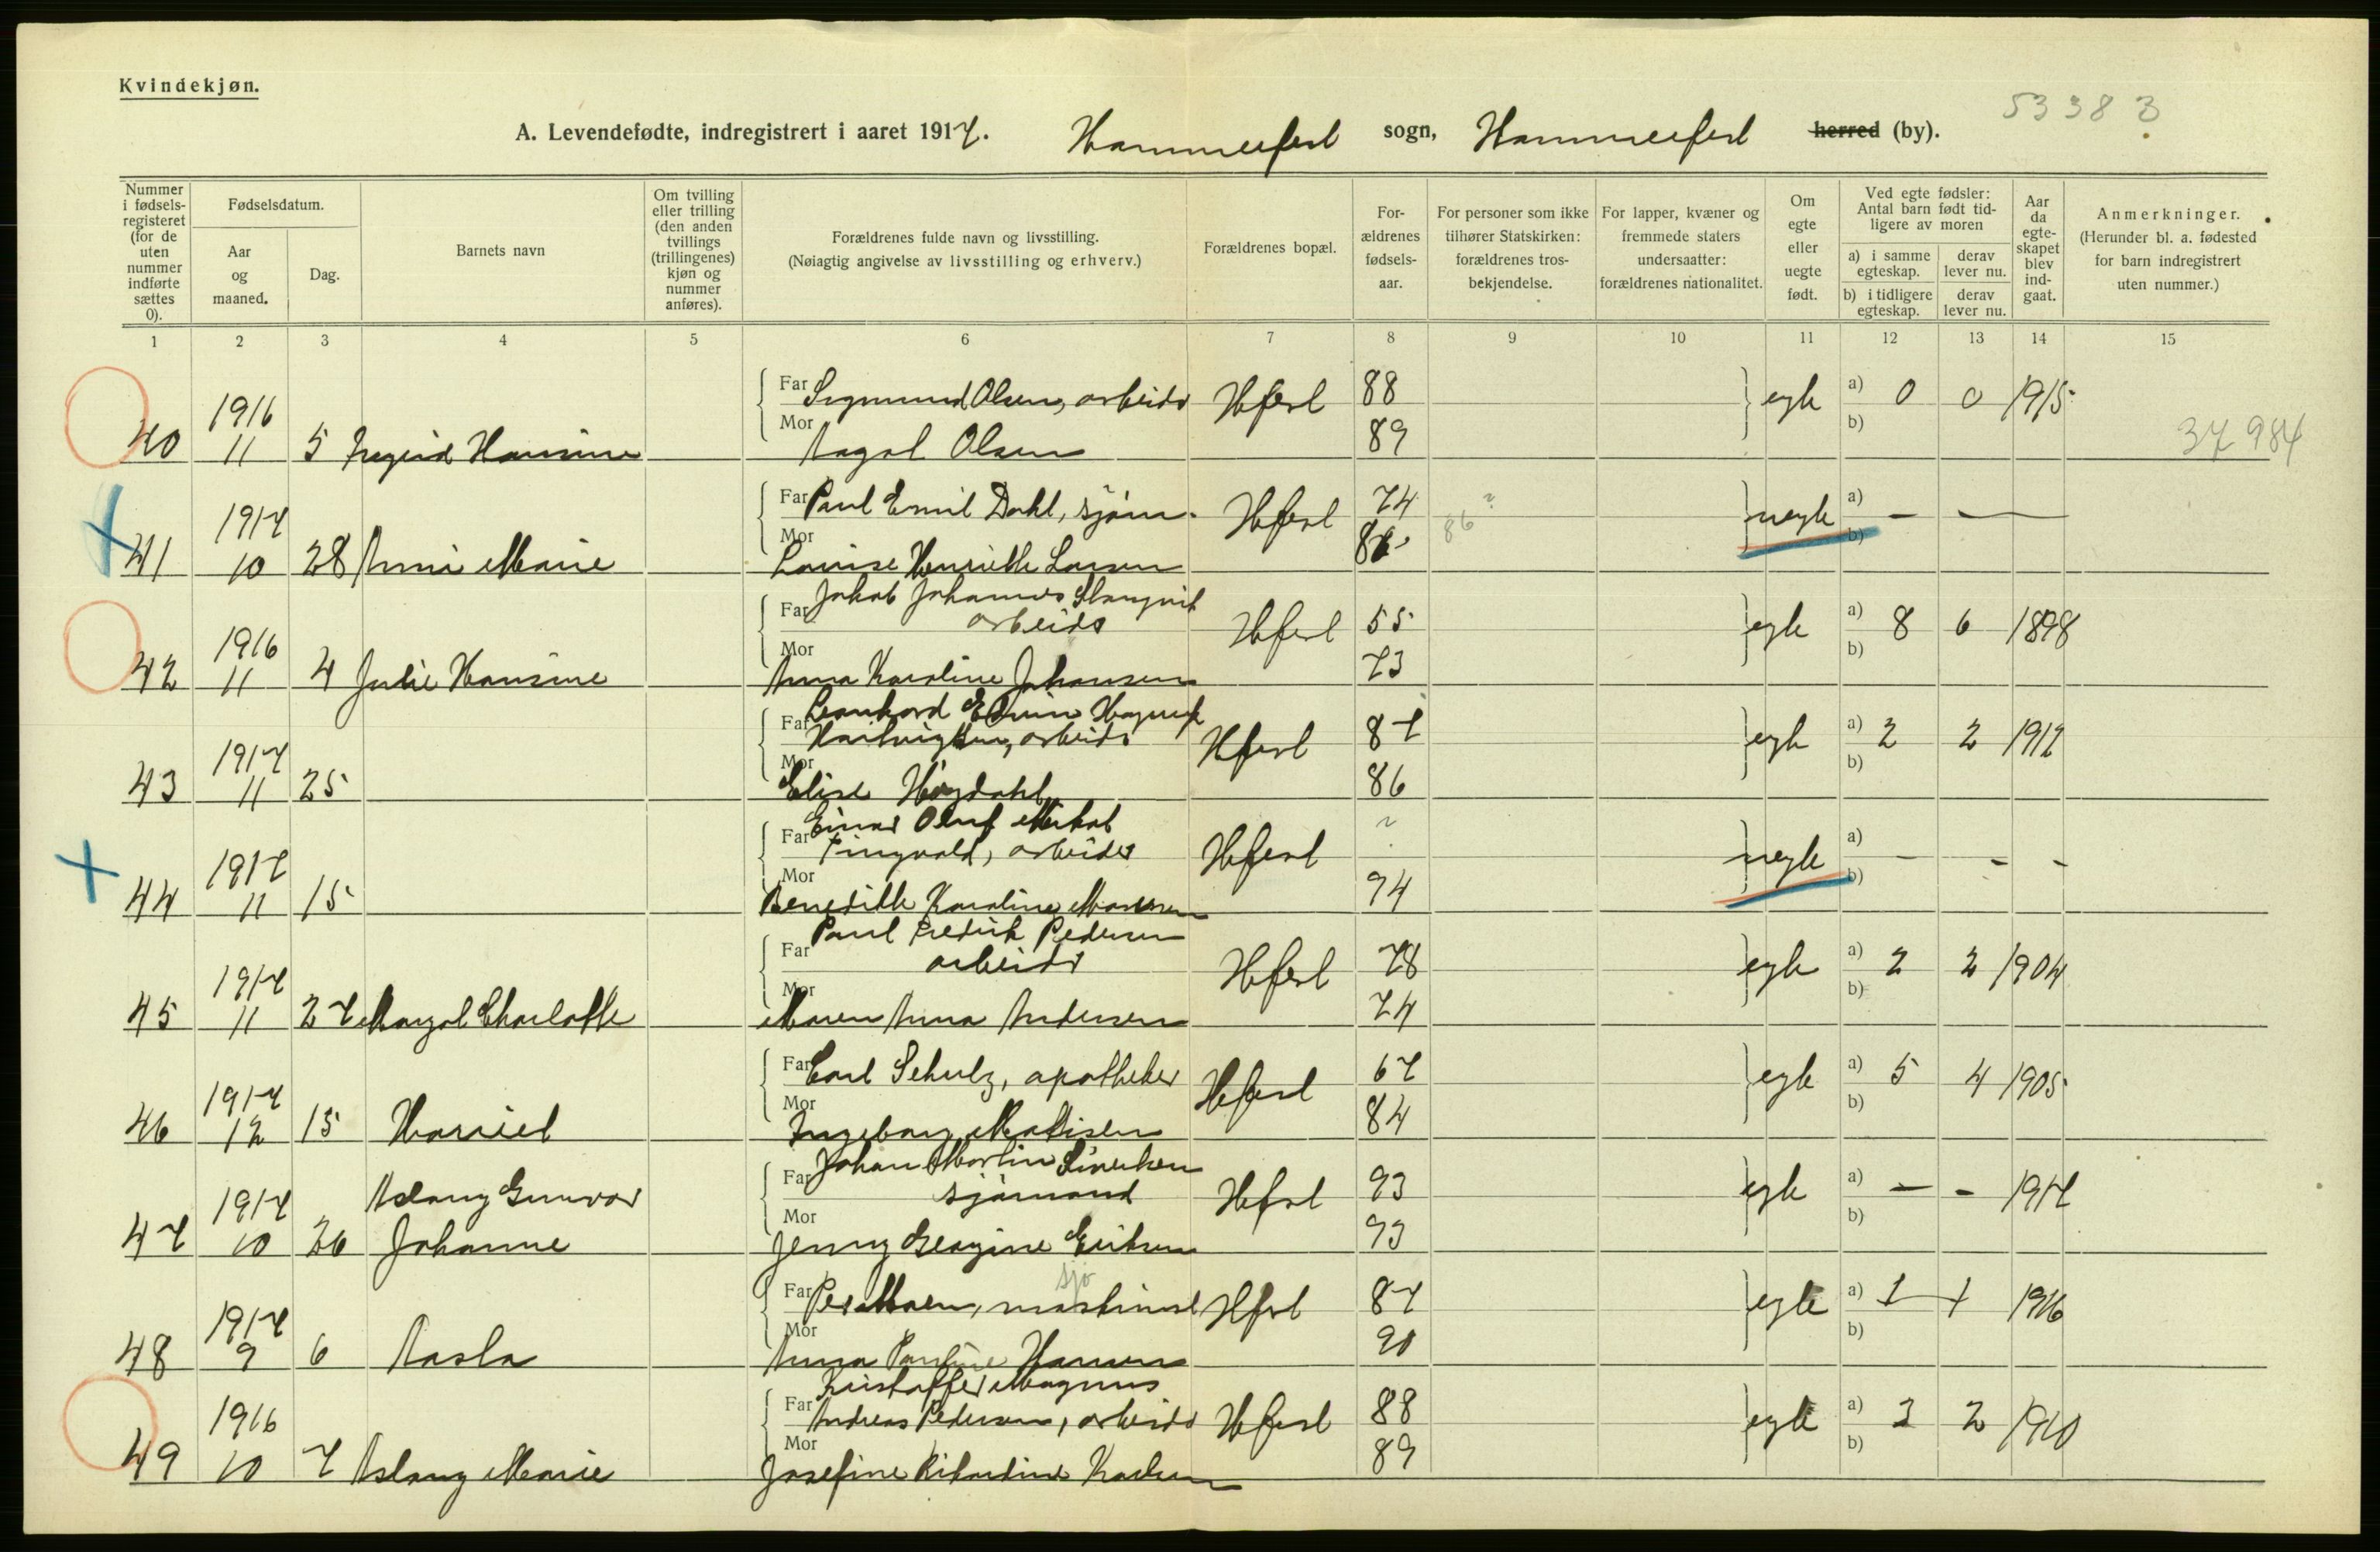 Kvindekjøn.
53383
A. Levendefødte, indregistrert i aaret 1917. Hammerfest sogn, Hammerfest herred (by).
Nummer i fødsels-registeret (for de uten nummer indførte sættes 0).
Fødselsdatum.
Aar og maaned.
Dag.
Barnets navn
Om tvilling eller trilling (den anden tvillings (trillingenes) kjøn og nummer anføres).
Forældrenes fulde navn og livsstilling.
(Nøiagtig angivelse av livsstilling og erhverv.)
Forældrenes bopæl.
For-ældrenes fødsels-aar.
For personer som ikke tilhører Statskirken: forældrenes tros-bekjendelse.
For lapper, kvæner og fremmede staters undersaatter: forældrenes nationalitet.
Om egte eller uegte født.
Ved egte fødsler: Antal barn født tid-ligere av moren
a) i samme egteskap.
derav lever nu.
b) i tidligere egteskap.
derav lever nu.
Aar da egte-skapet blev ind-gaat.
Anmerkninger.
(Herunder bl. a. fødested for barn indregistrert uten nummer.)
1 2 3 4 5 6 7 8 9 10 11 12 13 14 15
Far Sigmund Olsen, arbeider Hfest 88 egte a) 0 0 1915
40 1916 11 5 Ingrid Hansine Mor Aagot Olsen 89 b) 37984
Far Paul Emil Dahl, sjøm. Hfest 74 uegte a) — —
41 1917 10 28 Anni Marie Mor Louise Henriette Larsen 86 86 ? b)
Far Jakob Johannes
arbeider Hfest 55 egte a) 8 6 1898
42 1916 11 4 Julie Hansine Mor Anna Karoline Johansen 73 b)
Far Leonhard Edvin Hagerup
arbeider Hfest 87 egte a) 2 2 1912
43 1917 11 25 Mor Elise Høgdahl 86 b)
Far Einar Oluf
Tingvold, arbeider Hfest ? uegte a) — - -
44 1917 11 15 Mor Benedikte Karoline 94 b)
Far Paul Fredrik Pedersen
arbeider Hfest 78 egte a) 2 2 1904
45 1917 11 27 Margot Charlotte Mor Maren Anna Andersen 74 b)
Far Carl Schulz, apotheker Hfest 67 egte a) 5 4 1905
46 1917 12 15 Harriet Mor Ingeborg Mathisen 84 b)
Far Johan Martin Sivertsen
sjømand Hfest 93 egte a) — - 1917
47 1917 10 26 Aslaug Gunvor Johanne Mor Jenny Georgine Eriksen 93 b)
sjø
Far Peder Moen, maskinist Hfest 87 egte a) 1 1 1916
48 1917 9 6 Aasta Mor Anna Pauline Hansen 90 b)
Far Kristoffer Magnus
Andreas Pedersen, arbeider Hfest 88 egte a) 3 2 1910
49 1916 10 7 Aslaug Marie Mor Josefine Rikardine Karlsen 89 b)